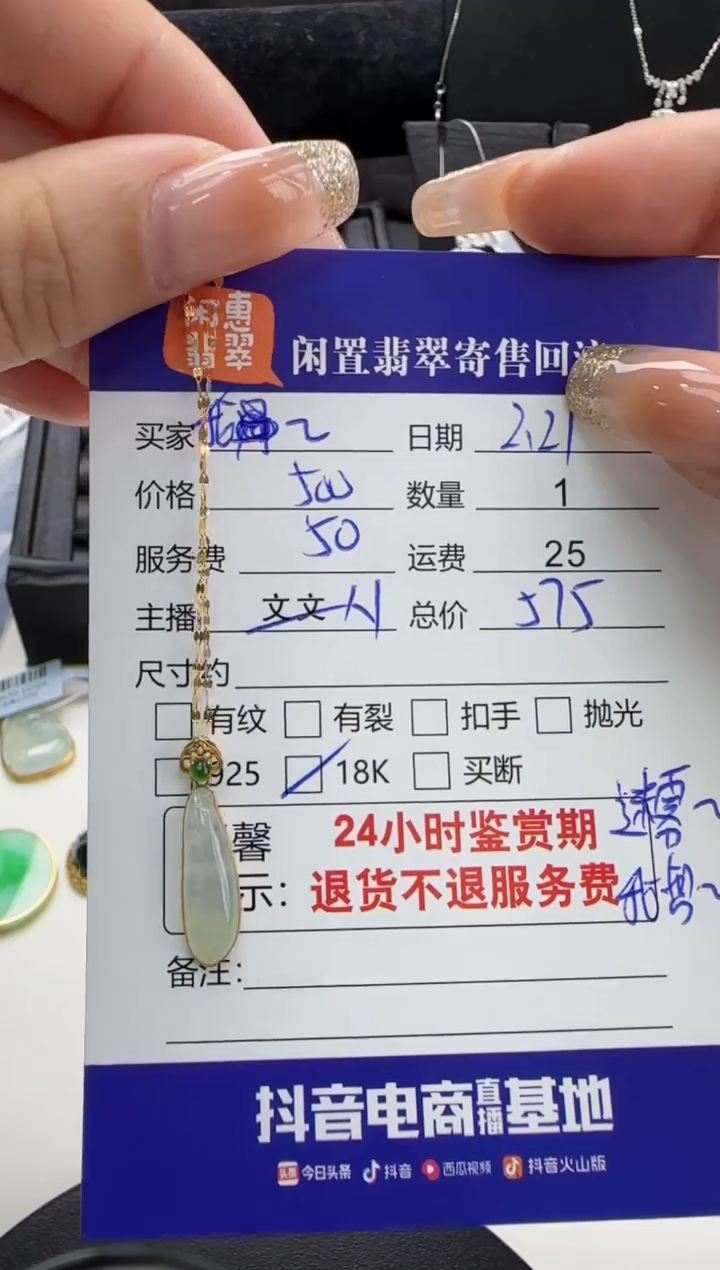 闲惠
翡翠
闲置翡翠寄售回
买家 日期 2.21
价格 500 数量 1
服务费 50 运费 25
主播 文文 总价 575
尺寸约
有纹 有裂 扣手 抛光
925 18K 买断
馨 24小时鉴赏期
示: 退货不退服务费
备注:
抖音电商直播基地
头条 今日头条 抖音 西瓜视频 抖音火山版